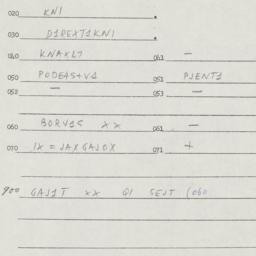 020 KNI
030 D1REXT1KN1
040 KNAKL7 041 —
050 PODEAS+V1 051 PJENT1
052 — 053 —
060 BORV1S XX 061 —
070 1X = JAXGAJOX 071 +
900 GAJ1T XX G1 SEJT (060